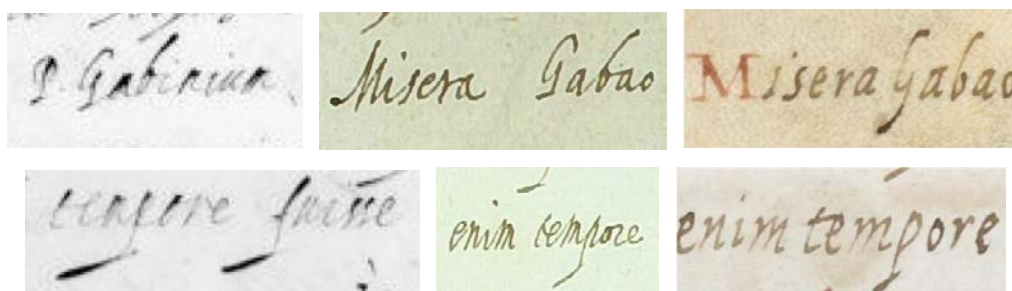 P. Gabinium
Misera Gabao
Misera Gabao
tempore fuisse
enim tempore
enim tempore